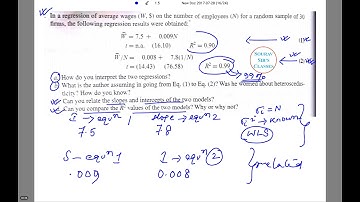 In a regression of average wages (W, $) on the number of employees (N) for a random sample of 30
firms, the following regression results were obtained:
Ŵ = 7.5 + 0.009N (1)
t = n.a. (16.10) R² = 0.90
Ŵ/N = 0.008 + 7.8(1/N) (2)
t = (14.43) (76.58) R² = 0.99
99%
SOURAV
SIR'S
CLASSES
a. How do you interpret the two regressions?
b. What is the author assuming in going from Eq. (1) to Eq. (2)? Was he worried about heteroscedas-
ticity? How do you know?
c. Can you relate the slopes and intercepts of the two models?
d. Can you compare the R² values of the two models? Why or why not?
I → equⁿ 1 slope → equⁿ 2
7.5 7.8
S → equⁿ 1 I → equⁿ 2
.009 0.008
σi² → known
WLS
related